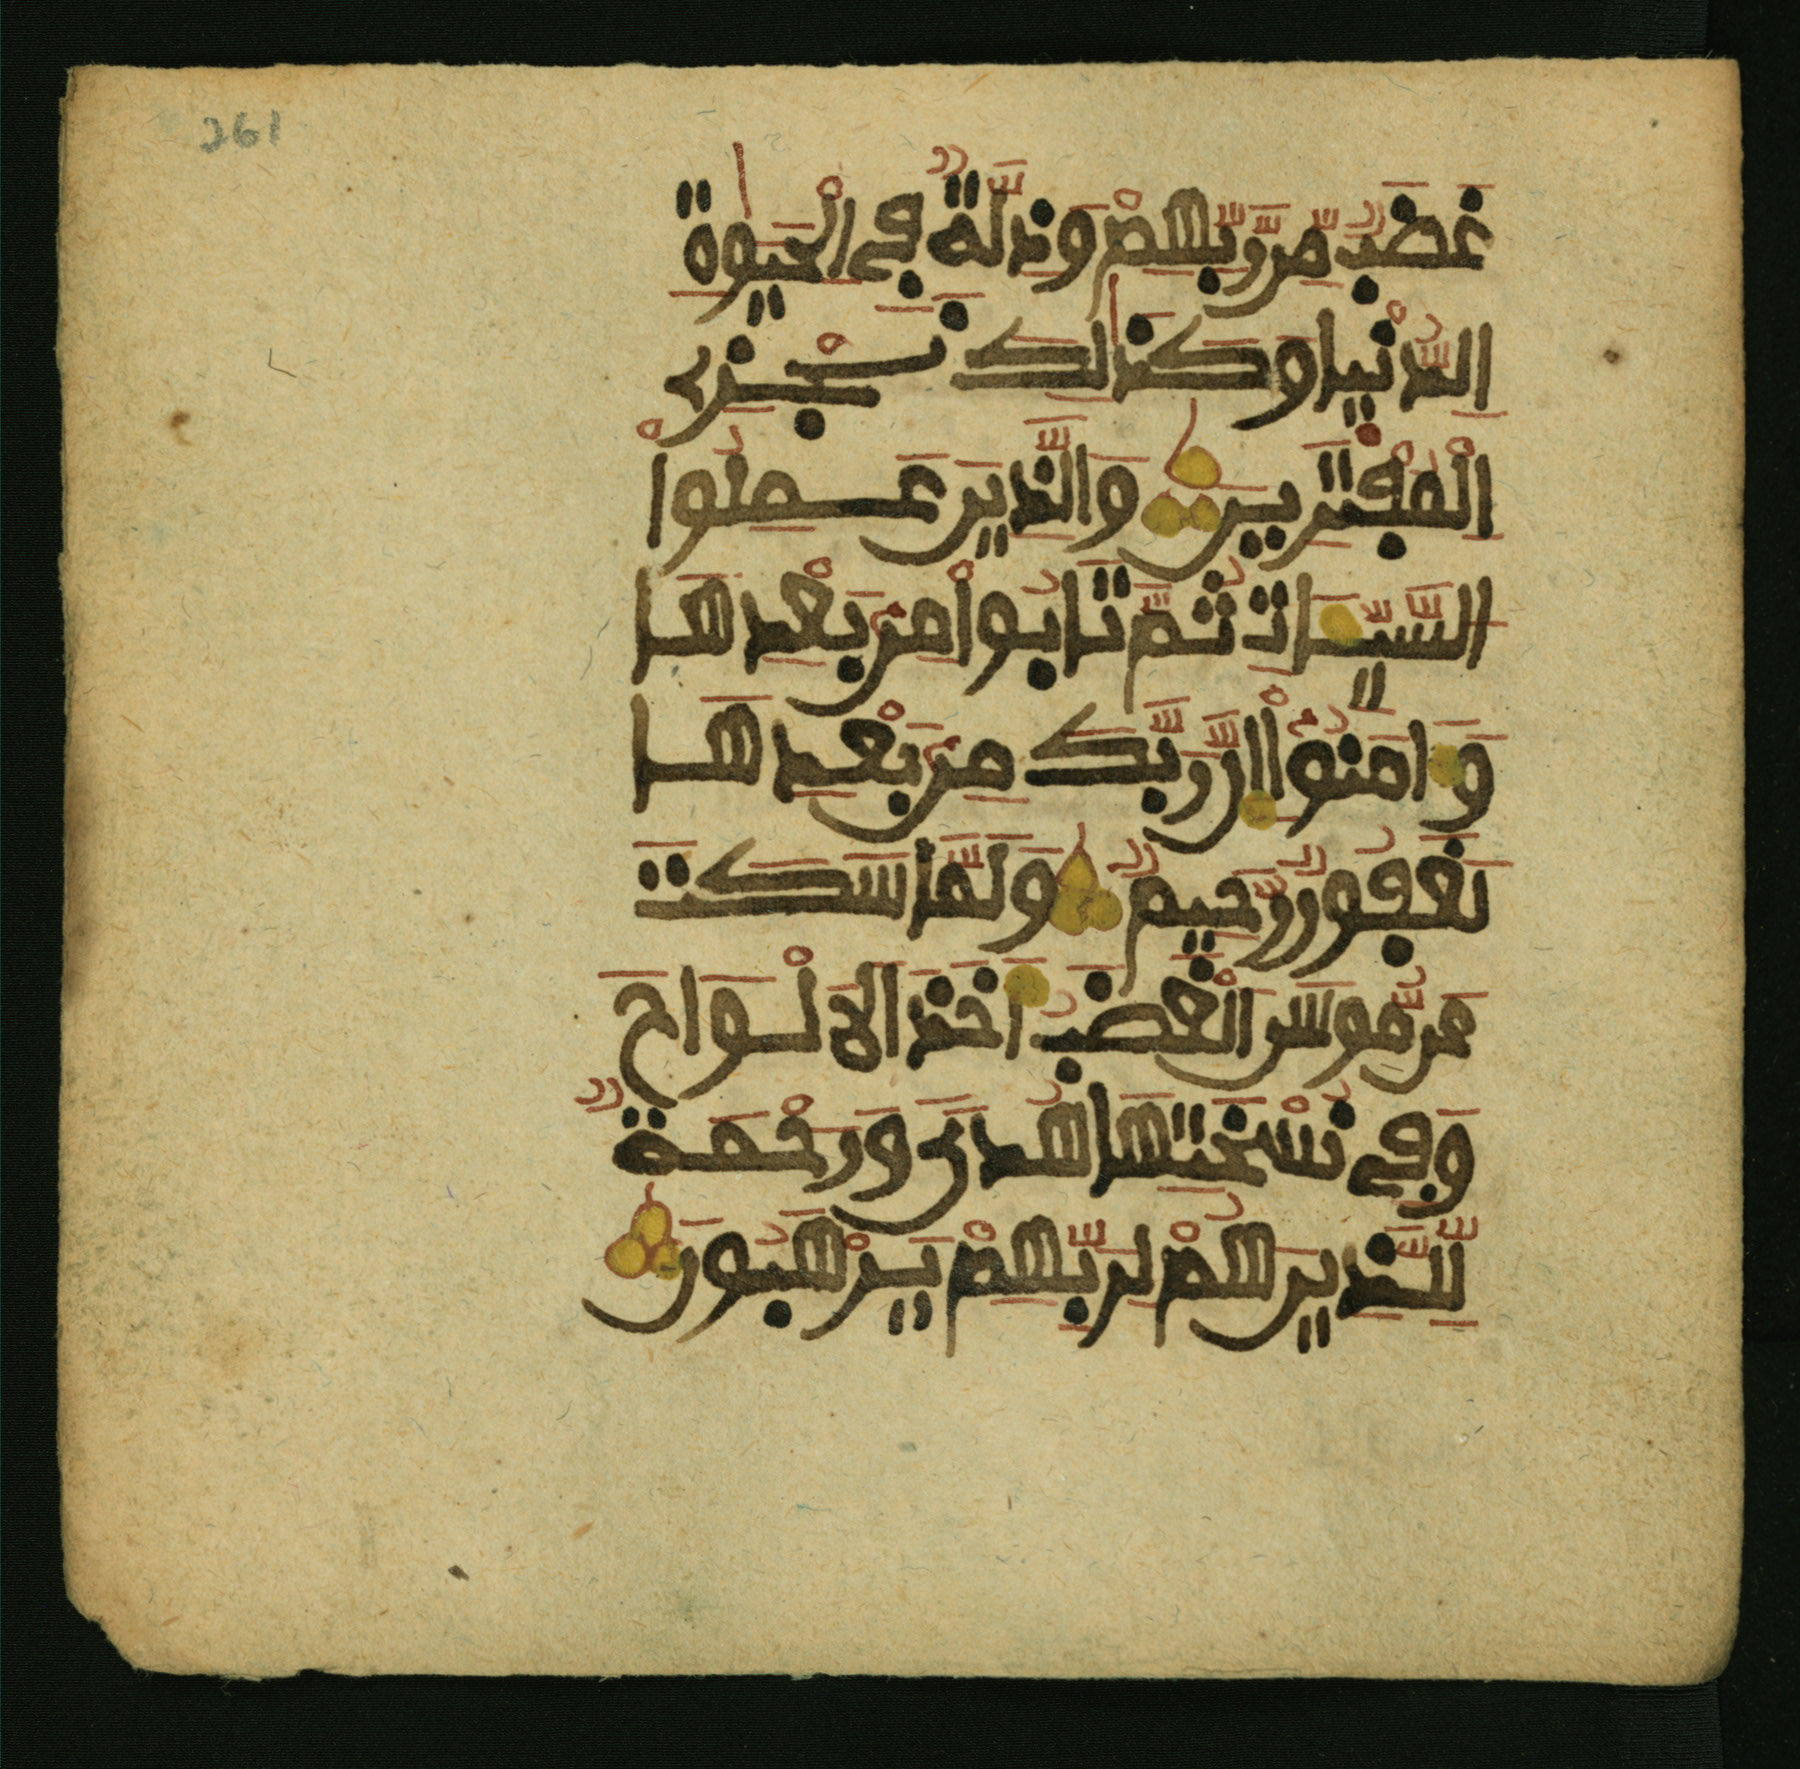 261
غَضَبٌ مِّن رَّبِّهِمْ وَذِلَّةٌ فِے الْحَيَوٰةِ
الدُّنْيِا وَكَذَٰلِكَ نَجْزِے
الْمُفْتَرِينَ وَالَّذِينَ عَمِلُواْ
السَّيِّـَاتِ ثُمَّ تَابُواْ مِنۢ بَعْدِهَا
وَءَامَنُوٓاْ إِنَّ رَبَّكَ مِنۢ بَعْدِهَا
لَغَفُورٌ رَّحِيمٌ وَلَمَّا سَكَتَ
عَن مُّوسَى الْغَضَبُ أَخَذَ الَالْوَاحَ
وَفِے نُسْخَتِهَا هُدىً وَرَحْمَةٌ
لِّلَّذِينَ هُمْ لِرَبِّهِمْ يَرْهَبُونَ